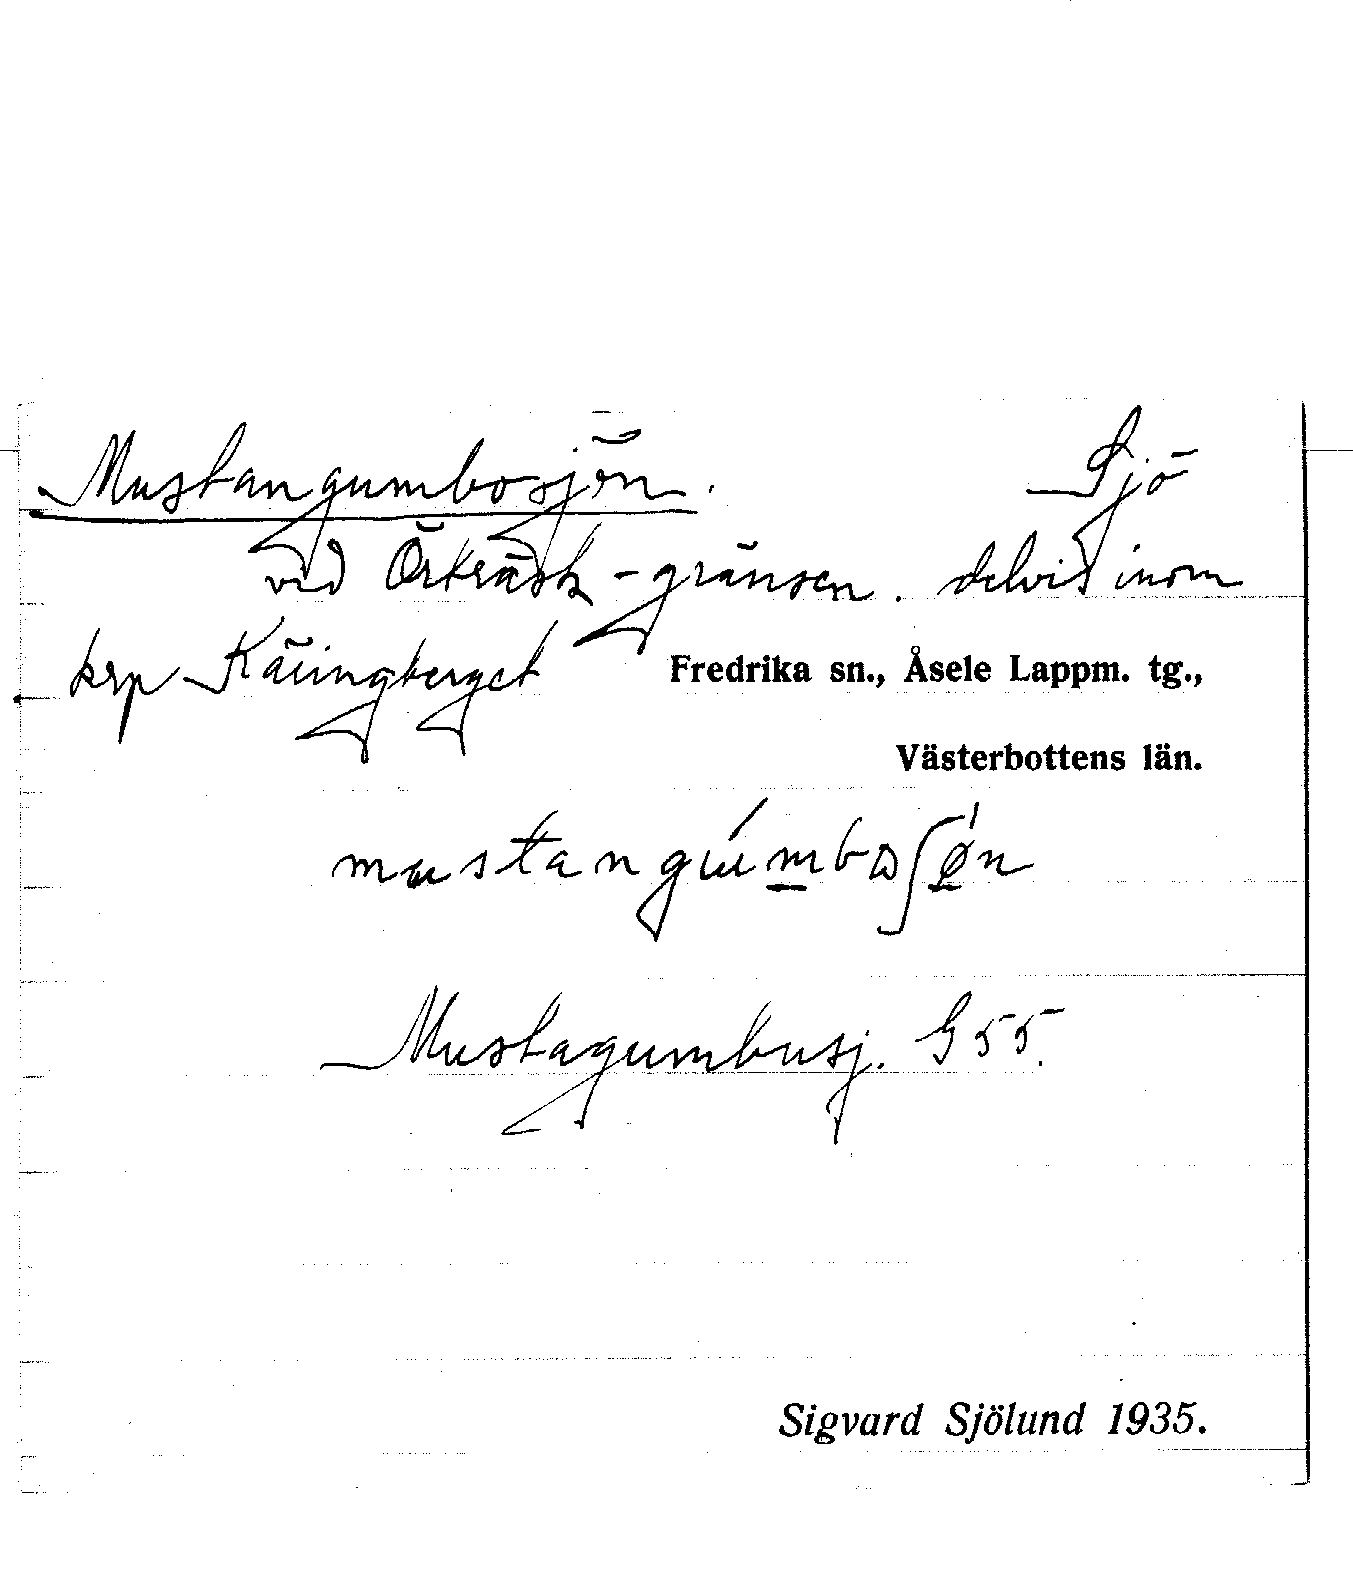 Mustangumbosjön. Sjö
vid Örträsk-gränsen. delvis inom
krp Käringberget Fredrika sn., Åsele Lappm. tg.,
Västerbottens län.
mustangúmboʃǿn
Mustagumbusj. G 55.
Sigvard Sjölund 1935.